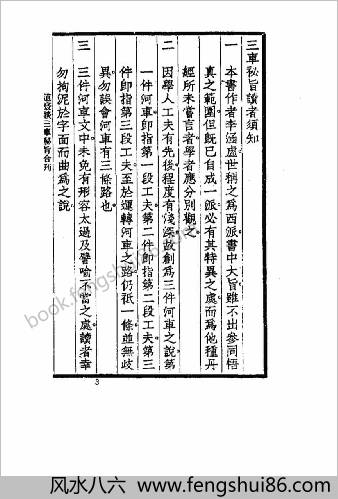 三車秘旨讀者須知
一 本書作者李涵虛世稱之為西派書中大旨雖不出參同悟
真之範圍但既已自成一派必有其特異之處而為他種丹
經所未嘗言者學者應分別觀之
二 因學人工夫有先後程度有淺深故創為三件河車之說第
一件河車即指第一段工夫第二件即指第二段工夫第三
件即指第三段工夫至於運轉河車之路仍祇一條並無歧
異勿誤會河車有三條路也
三 三件河車文中未免有形容太過及譬喻不當之處讀者幸
勿拘泥於字面而曲為之說
道竅談三車秘旨合刊
3
book.fengshui86.com
风水八六 www.fengshui86.com